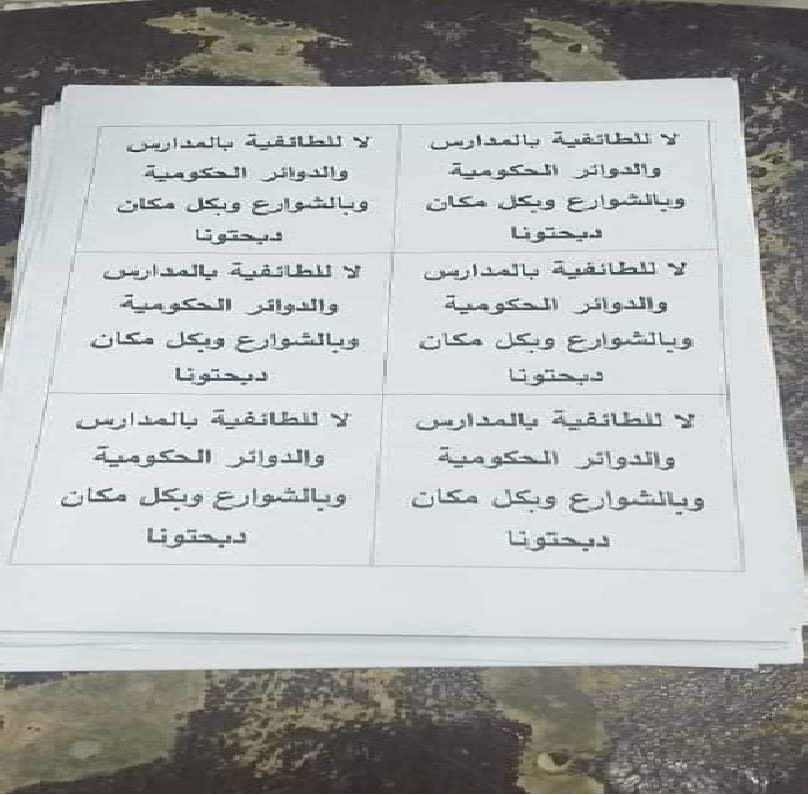 لا للطائفية بالمدارس
والدوائر الحكومية
وبالشوارع وبكل مكان
دبحتونا
لا للطائفية بالمدارس
والدوائر الحكومية
وبالشوارع وبكل مكان
دبحتونا
لا للطائفية بالمدارس
والدوائر الحكومية
وبالشوارع وبكل مكان
دبحتونا
لا للطائفية بالمدارس
والدوائر الحكومية
وبالشوارع وبكل مكان
دبحتونا
لا للطائفية بالمدارس
والدوائر الحكومية
وبالشوارع وبكل مكان
دبحتونا
لا للطائفية بالمدارس
والدوائر الحكومية
وبالشوارع وبكل مكان
دبحتونا